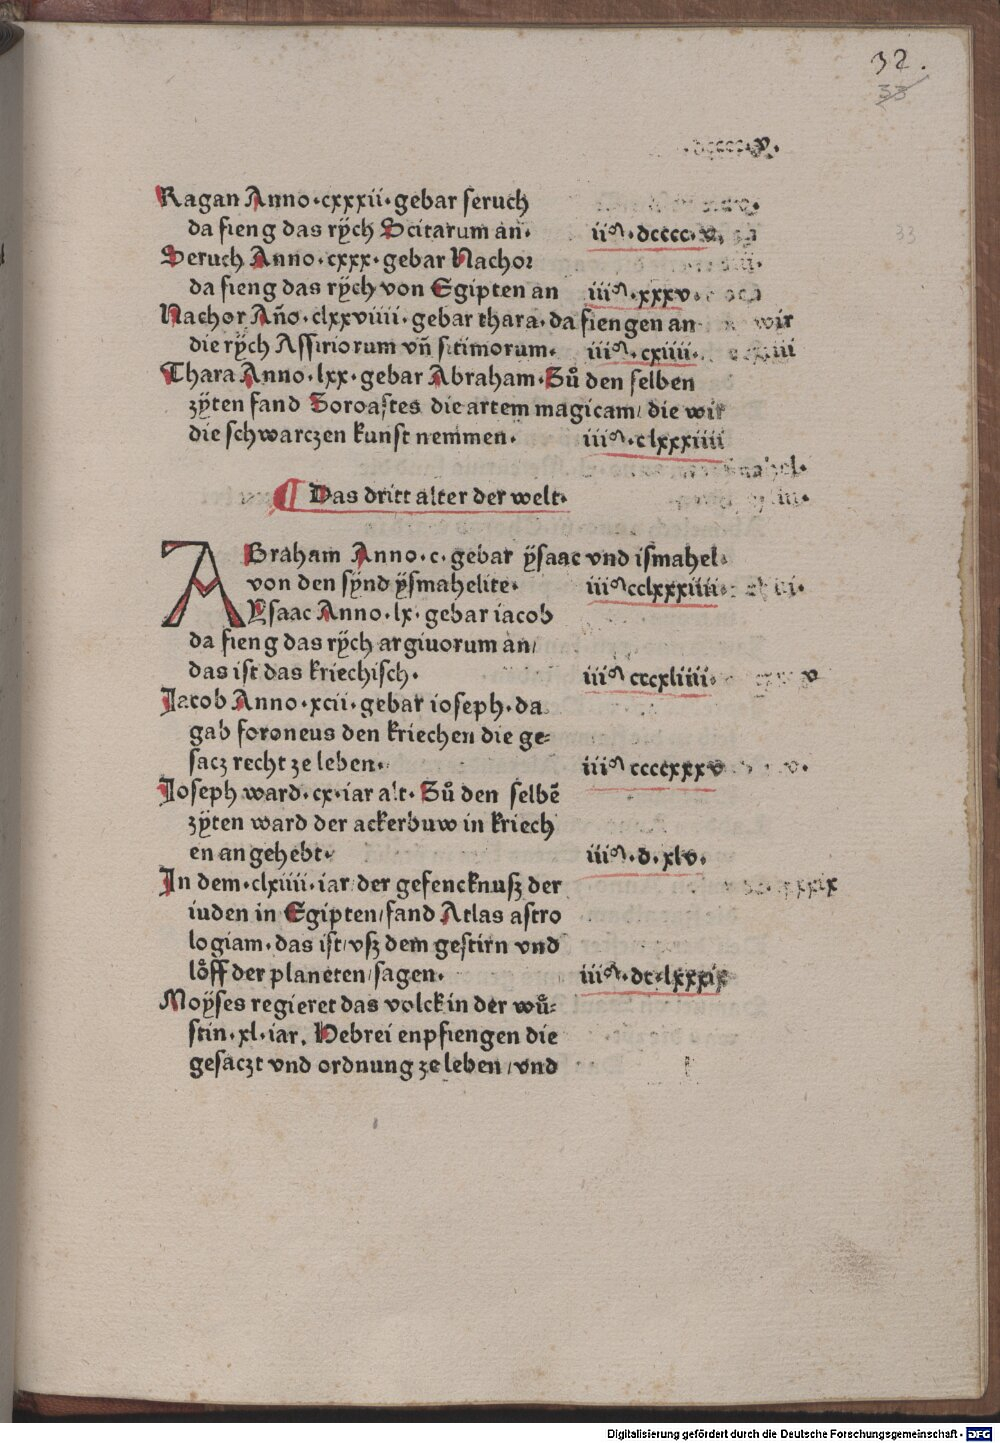 32.
33
Ragan Anno·cxxxii·gebar seruch
da fieng das rÿch Scitarum an· iiᵐ·dcccc·v·
33
Seruch Anno·cxxx·gebar Nachor
da fieng das rÿch von Egipten an iiiᵐ·xxxv·
Nachor Añо·clxxviiii·gebar thara·da fiengen an
die rÿch Assiriorum vñ sitimorum· iiiᵐ·cxiiii·
Thara Anno·lxx·gebar Abraham·Zů den selben
zÿten fand Zoroastes die artem magicam/ die wir
die schwarczen kunst nemmen· iiiᵐ·clxxxiiii
¶ Das dritt alter der welt·
ABraham Anno·c·gebar ÿsaac vnd ismahel·
von den sÿnd ÿsmahelite· iiiᵐcclxxxiiii
Ysaac Anno·lx·gebar iacob
da fieng das rÿch argiuorum an/
das ist das kriechisch· iiiᵐcccxliiii·
Jacob Anno·xcii·gebar ioseph·da
gab foroneus den kriechen die ge⸗
sacz recht ze leben· iiiᵐccccxxxv
Joseph ward·cx·iar alt·Zů den selbē
zÿten ward der ackerbuw in kriech
en an gehebt· iiiᵐ·d·xlv·
In dem·clxiiii·iar/der gefencknusz der
iuden in Egipten/fand Atlas astro
logiam·das ist/vsz dem gestirn vnd
lo̊ff der planeten/sagen· iiiᵐ·dc·lxxxix
Moÿses regieret das volck in der wů⸗
stin·xl·iar. Hebrei enpfiengen die
gesaczt vnd ordnung ze leben/vnd
Digitalisierung gefördert durch die Deutsche Forschungsgemeinschaft - DFG